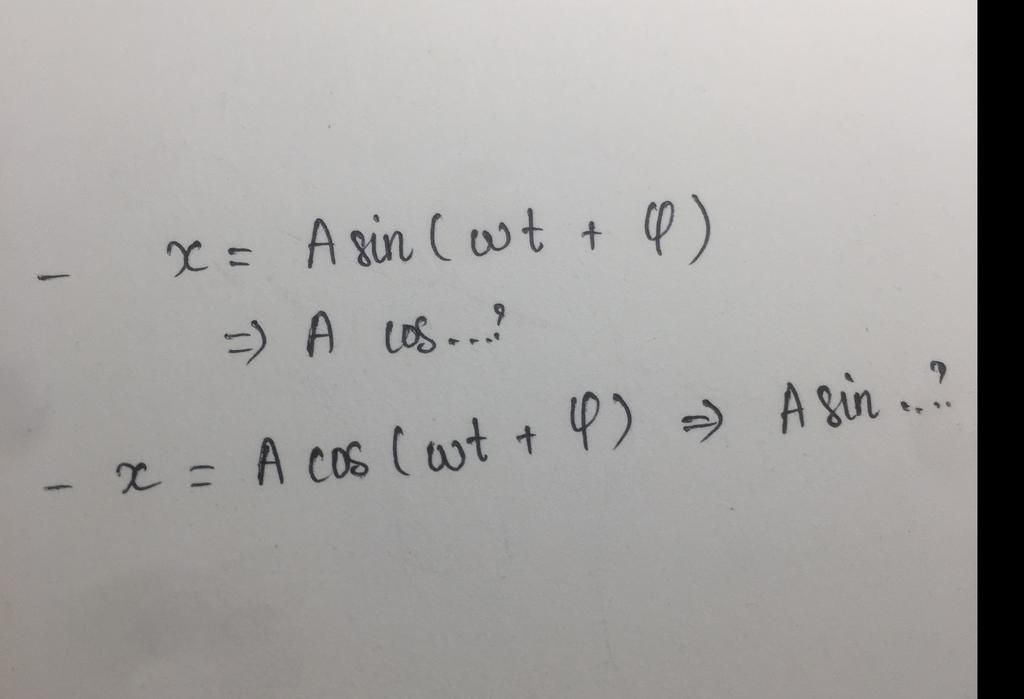 - x = A sin ( ωt + φ )
=> A cos...?
- x = A cos ( ωt + φ ) => A sin ...?